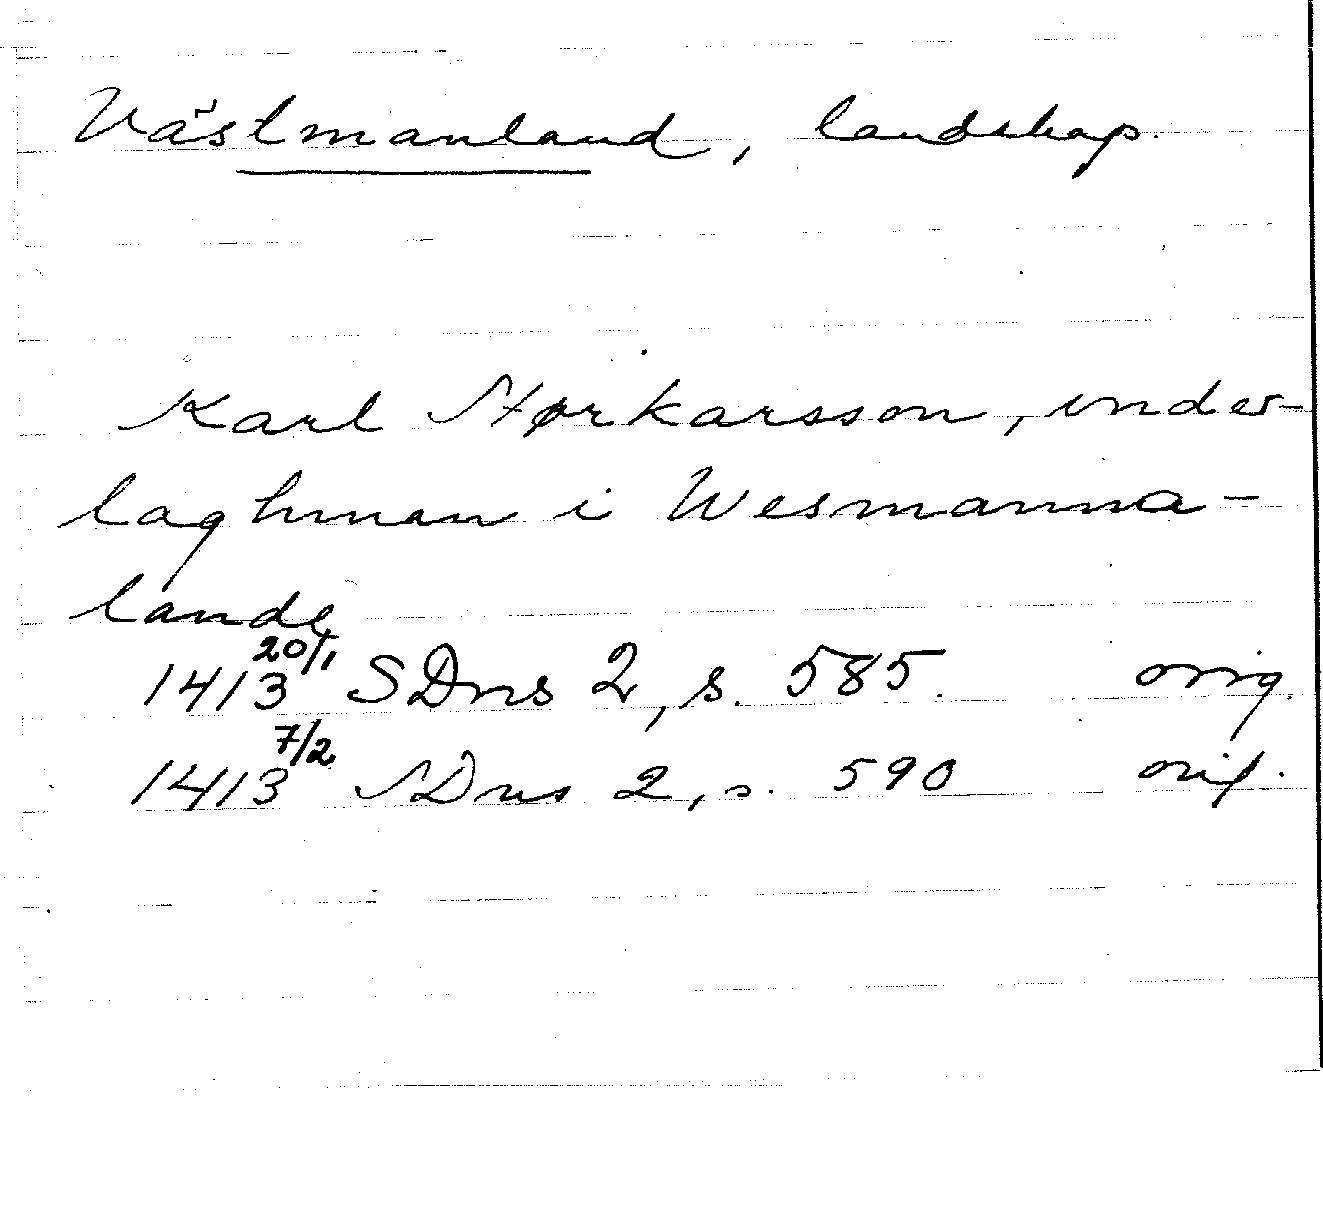 Västmanland, landskap.
Karl Størkarsson, under-
laghman i Wesmanna-
lande
1413 20/1 SDns 2, s. 585. orig.
1413 7/2 SDns 2, s. 590 orig.